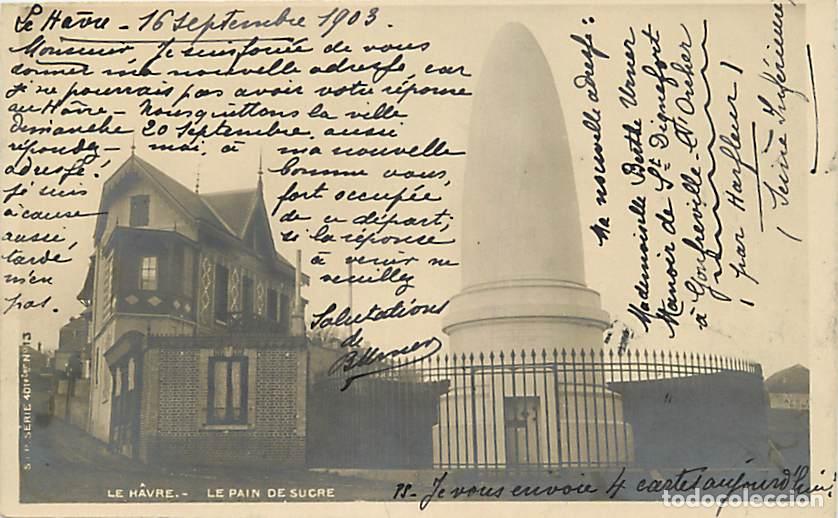 Le Hâvre - 16 Septembre 1903.
Monsieur, Je suis forcée de vous
donner ma nouvelle adresse, car
je ne pourrais pas avoir votre réponse
au Hâvre - Nous quittons la ville
dimanche 20 Septembre, aussi
répondez - moi, à ma nouvelle
adresse!
Comme vous,
je suis
fort occupée
à cause
de ce départ;
aussi,
si la réponse
tarde
à venir ne
m'en
veuillez
pas.
Salutations
de
Ma nouvelle adresse:
Mademoiselle Berthe Urner
Manoir de St Dignefort
à Gonfreville - l'Orcher
par Harfleur
(Seine Inférieure)
LE HÂVRE.- LE PAIN DE SUCRE
PS - Je vous envoie 4 cartes aujourd'hui!
todocoleccion.net